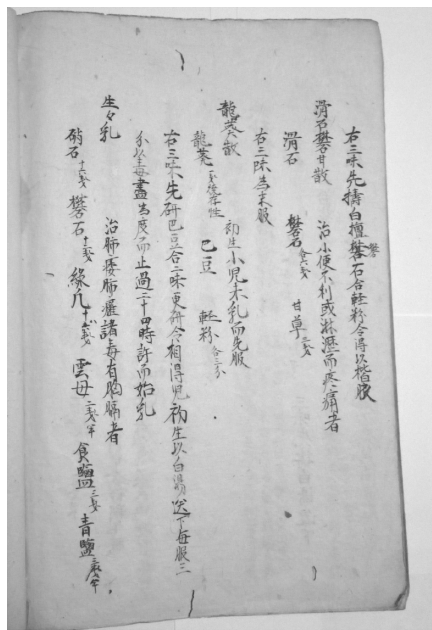 右三味先擣白檀礬石合軽粉令得以楷服
滑石礬甘散 治小便不利或淋瀝而疼痛者
滑石 礬石各六戔 甘草三戔
右三味為末服
龍葵散 初生小児未乳而先服
龍葵 巴豆 軽粉各三分
右三味先研巴豆合二味更研令相得児初生以白湯送下毎服三
分以毒盡為度而止過二十四時許而始乳
生々乳 治肺痿肺癰諸毒有胸膈者
礬石 緑凡 雲母 食鹽三戔 青鹽